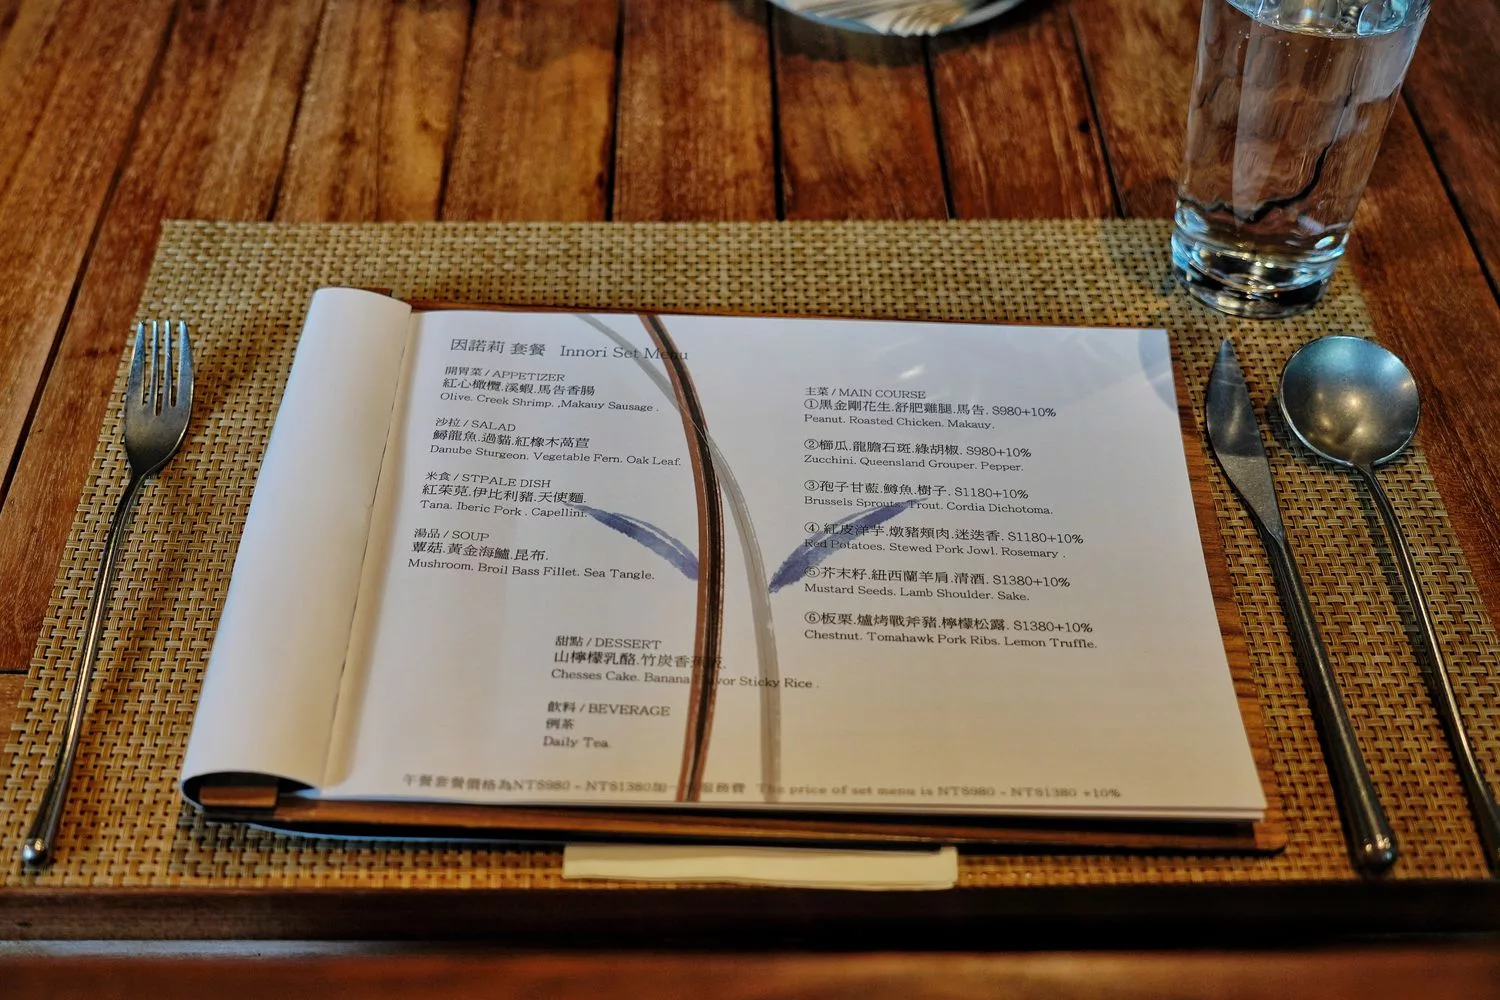 因諾莉 套餐 Innori Set Menu
開胃菜 / APPETIZER
紅心橄欖.溪蝦.馬告香腸
Olive. Creek Shrimp. ,Makauy Sausage .
沙拉 / SALAD
鱘龍魚.過貓.紅橡木萵苣
Danube Sturgeon. Vegetable Fern. Oak Leaf.
米食 / STPALE DISH
紅茱萸.伊比利豬.天使麵.
Tana. Iberic Pork . Capellini.
湯品 / SOUP
蕈菇.黃金海鱸.昆布.
Mushroom. Broil Bass Fillet. Sea Tangle.
甜點 / DESSERT
山檸檬乳酪.竹炭香蕉飯.
Chesses Cake. Banana Flavor Sticky Rice .
飲料 / BEVERAGE
例茶
Daily Tea.
主菜 / MAIN COURSE
①黑金剛花生.舒肥雞腿.馬告. $980+10%
Peanut. Roasted Chicken. Makauy.
②櫛瓜.龍膽石斑.綠胡椒. $980+10%
Zucchini. Queensland Grouper. Pepper.
③孢子甘藍.鱒魚.樹子. $1180+10%
Brussels Sprouts. Trout. Cordia Dichotoma.
④ 紅皮洋芋.燉豬頰肉.迷迭香. $1180+10%
Red Potatoes. Stewed Pork Jowl. Rosemary .
⑤芥末籽.紐西蘭羊肩.清酒. $1380+10%
Mustard Seeds. Lamb Shoulder. Sake.
⑥板栗.爐烤戰斧豬.檸檬松露. $1380+10%
Chestnut. Tomahawk Pork Ribs. Lemon Truffle.
午餐套餐價格為NT$980 - NT$1380加一 服務費 The price of set menu is NT$980 - NT$1380 +10%